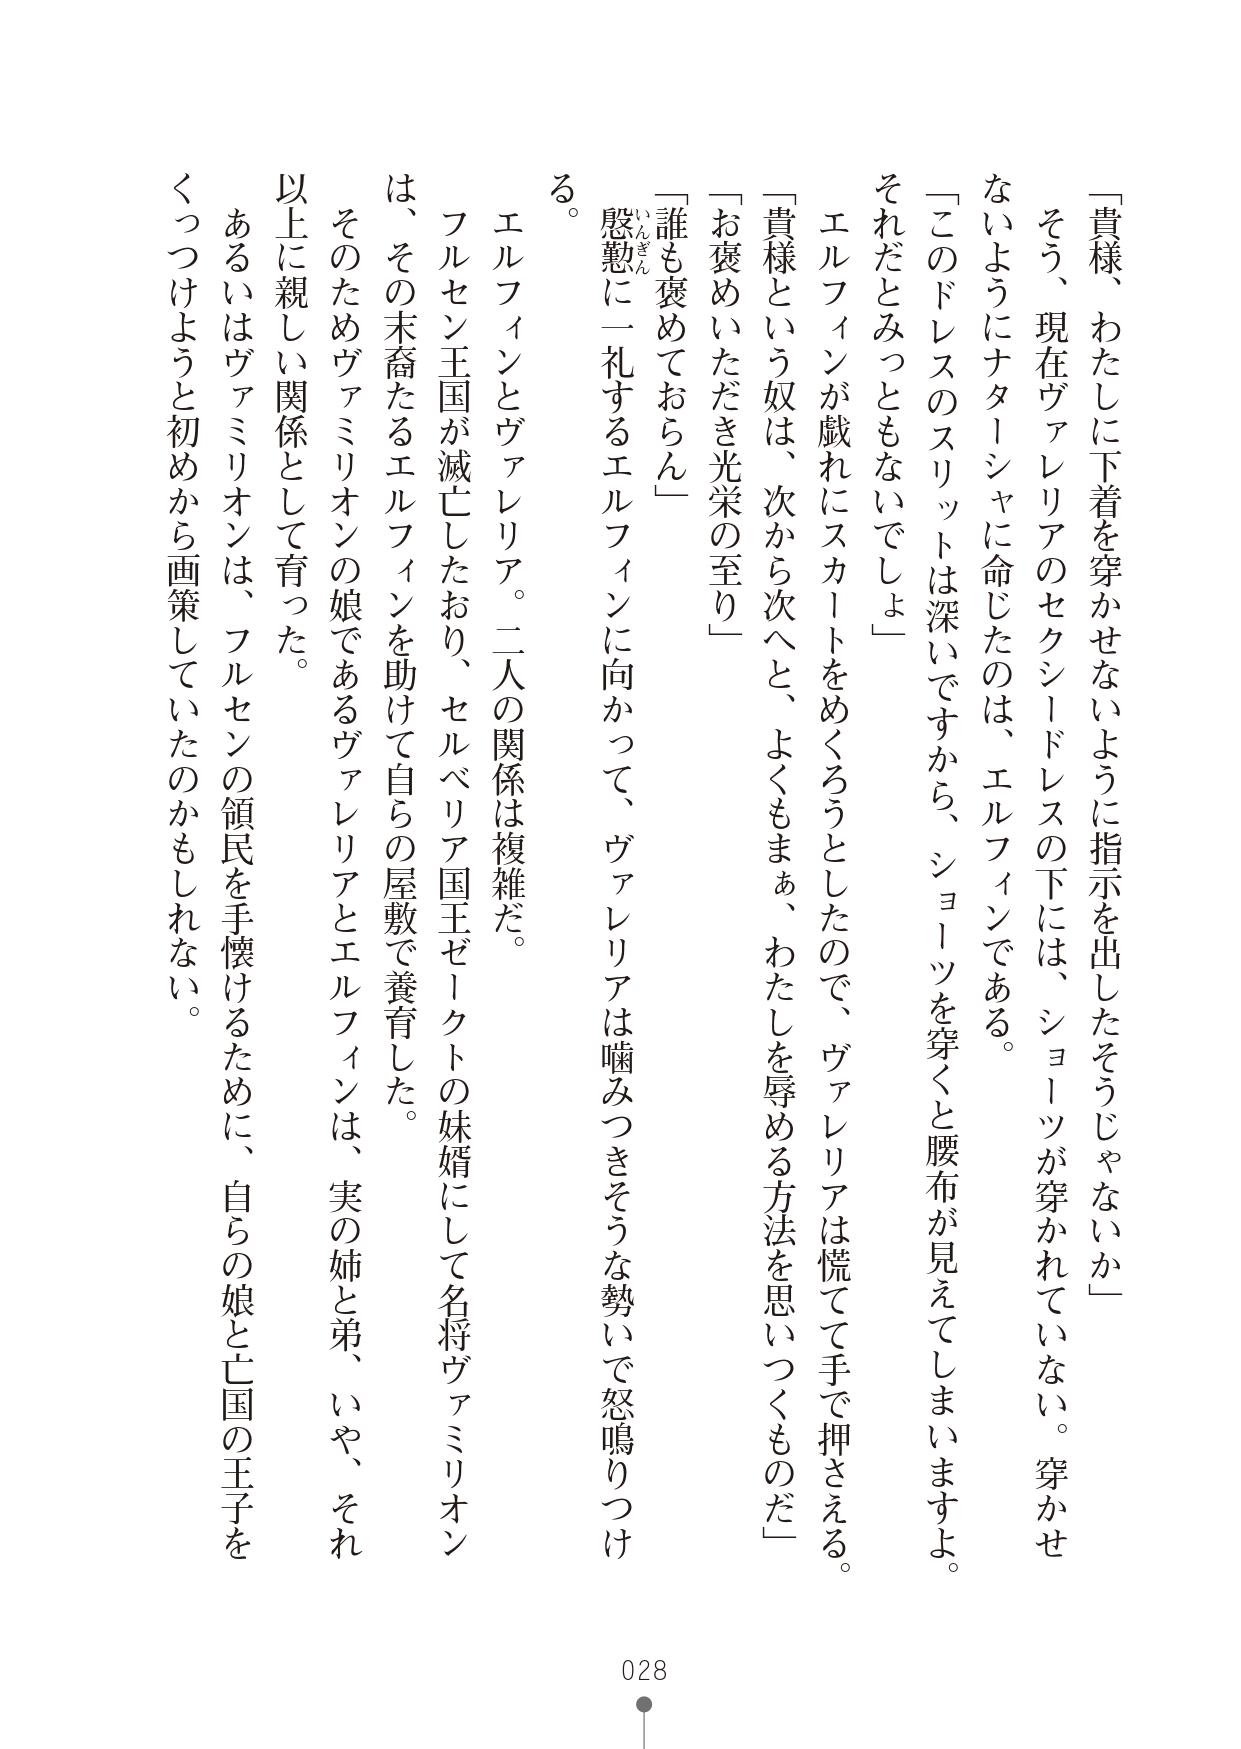 「貴様、わたしに下着を穿かせないように指示を出したそうじゃないか」
そう、現在ヴァレリアのセクシードレスの下には、ショーツが穿かれていない。穿かせ
ないようにナターシャに命じたのは、エルフィンである。
「このドレスのスリットは深いですから、ショーツを穿くと腰布が見えてしまいますよ。
それだとみっともないでしょ」
エルフィンが戯れにスカートをめくろうとしたので、ヴァレリアは慌てて手で押さえる。
「貴様という奴は、次から次へと、よくもまぁ、わたしを辱める方法を思いつくものだ」
「お褒めいただき光栄の至り」
「誰も褒めておらん」
慇懃いんぎんに一礼するエルフィンに向かって、ヴァレリアは噛みつきそうな勢いで怒鳴りつけ
る。
エルフィンとヴァレリア。二人の関係は複雑だ。
フルセン王国が滅亡したおり、セルベリア国王ゼークトの妹婿にして名将ヴァミリオン
は、その末裔たるエルフィンを助けて自らの屋敷で養育した。
そのためヴァミリオンの娘であるヴァレリアとエルフィンは、実の姉と弟、いや、それ
以上に親しい関係として育った。
あるいはヴァミリオンは、フルセンの領民を手懐けるために、自らの娘と亡国の王子を
くっつけようと初めから画策していたのかもしれない。
028